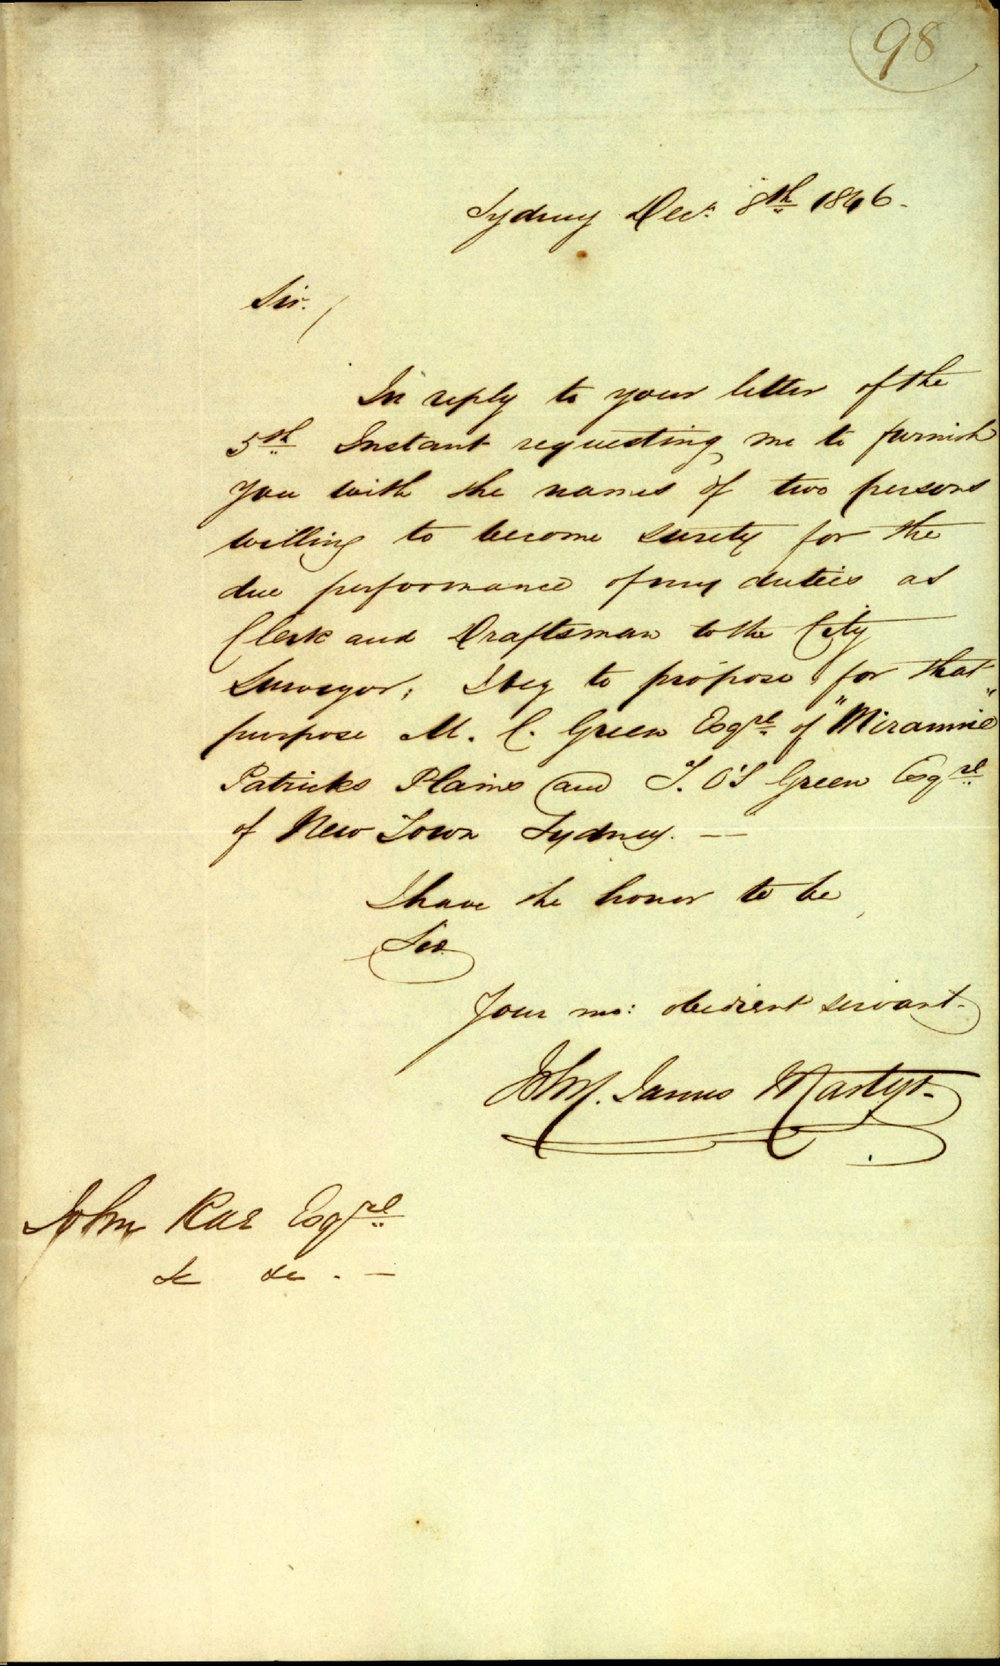 98
Sydney Decr 8th 1846.
Sir.
In reply to your letter of the
5th Instant requesting me to furnish
you with the names of two persons
willing to become surety for the
due performance of my duties as
Clerk and Draftsman to the City
Surveyor, I beg to propose for that
purpose M. C. Green Esqre of "Mirannie"
Patricks Plains and T. O'S Green Esqre
of New Town Sydney. —
I have the honor to be
Sir
Your mo: obedient servant.
James Martyr.
John Rae Esqre
&c &c. —